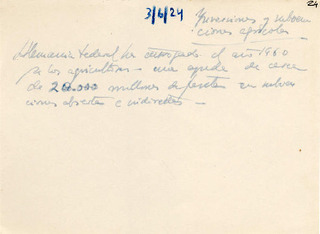 24
3/6/24
Inversiones y subven
ciones agrícolas —
Alemania Federal ha otorgado el año 1960
a los agricultores — una ayuda de cerca
de 20.000 millones de pesetas en subven
ciones abiertas e indirectas —